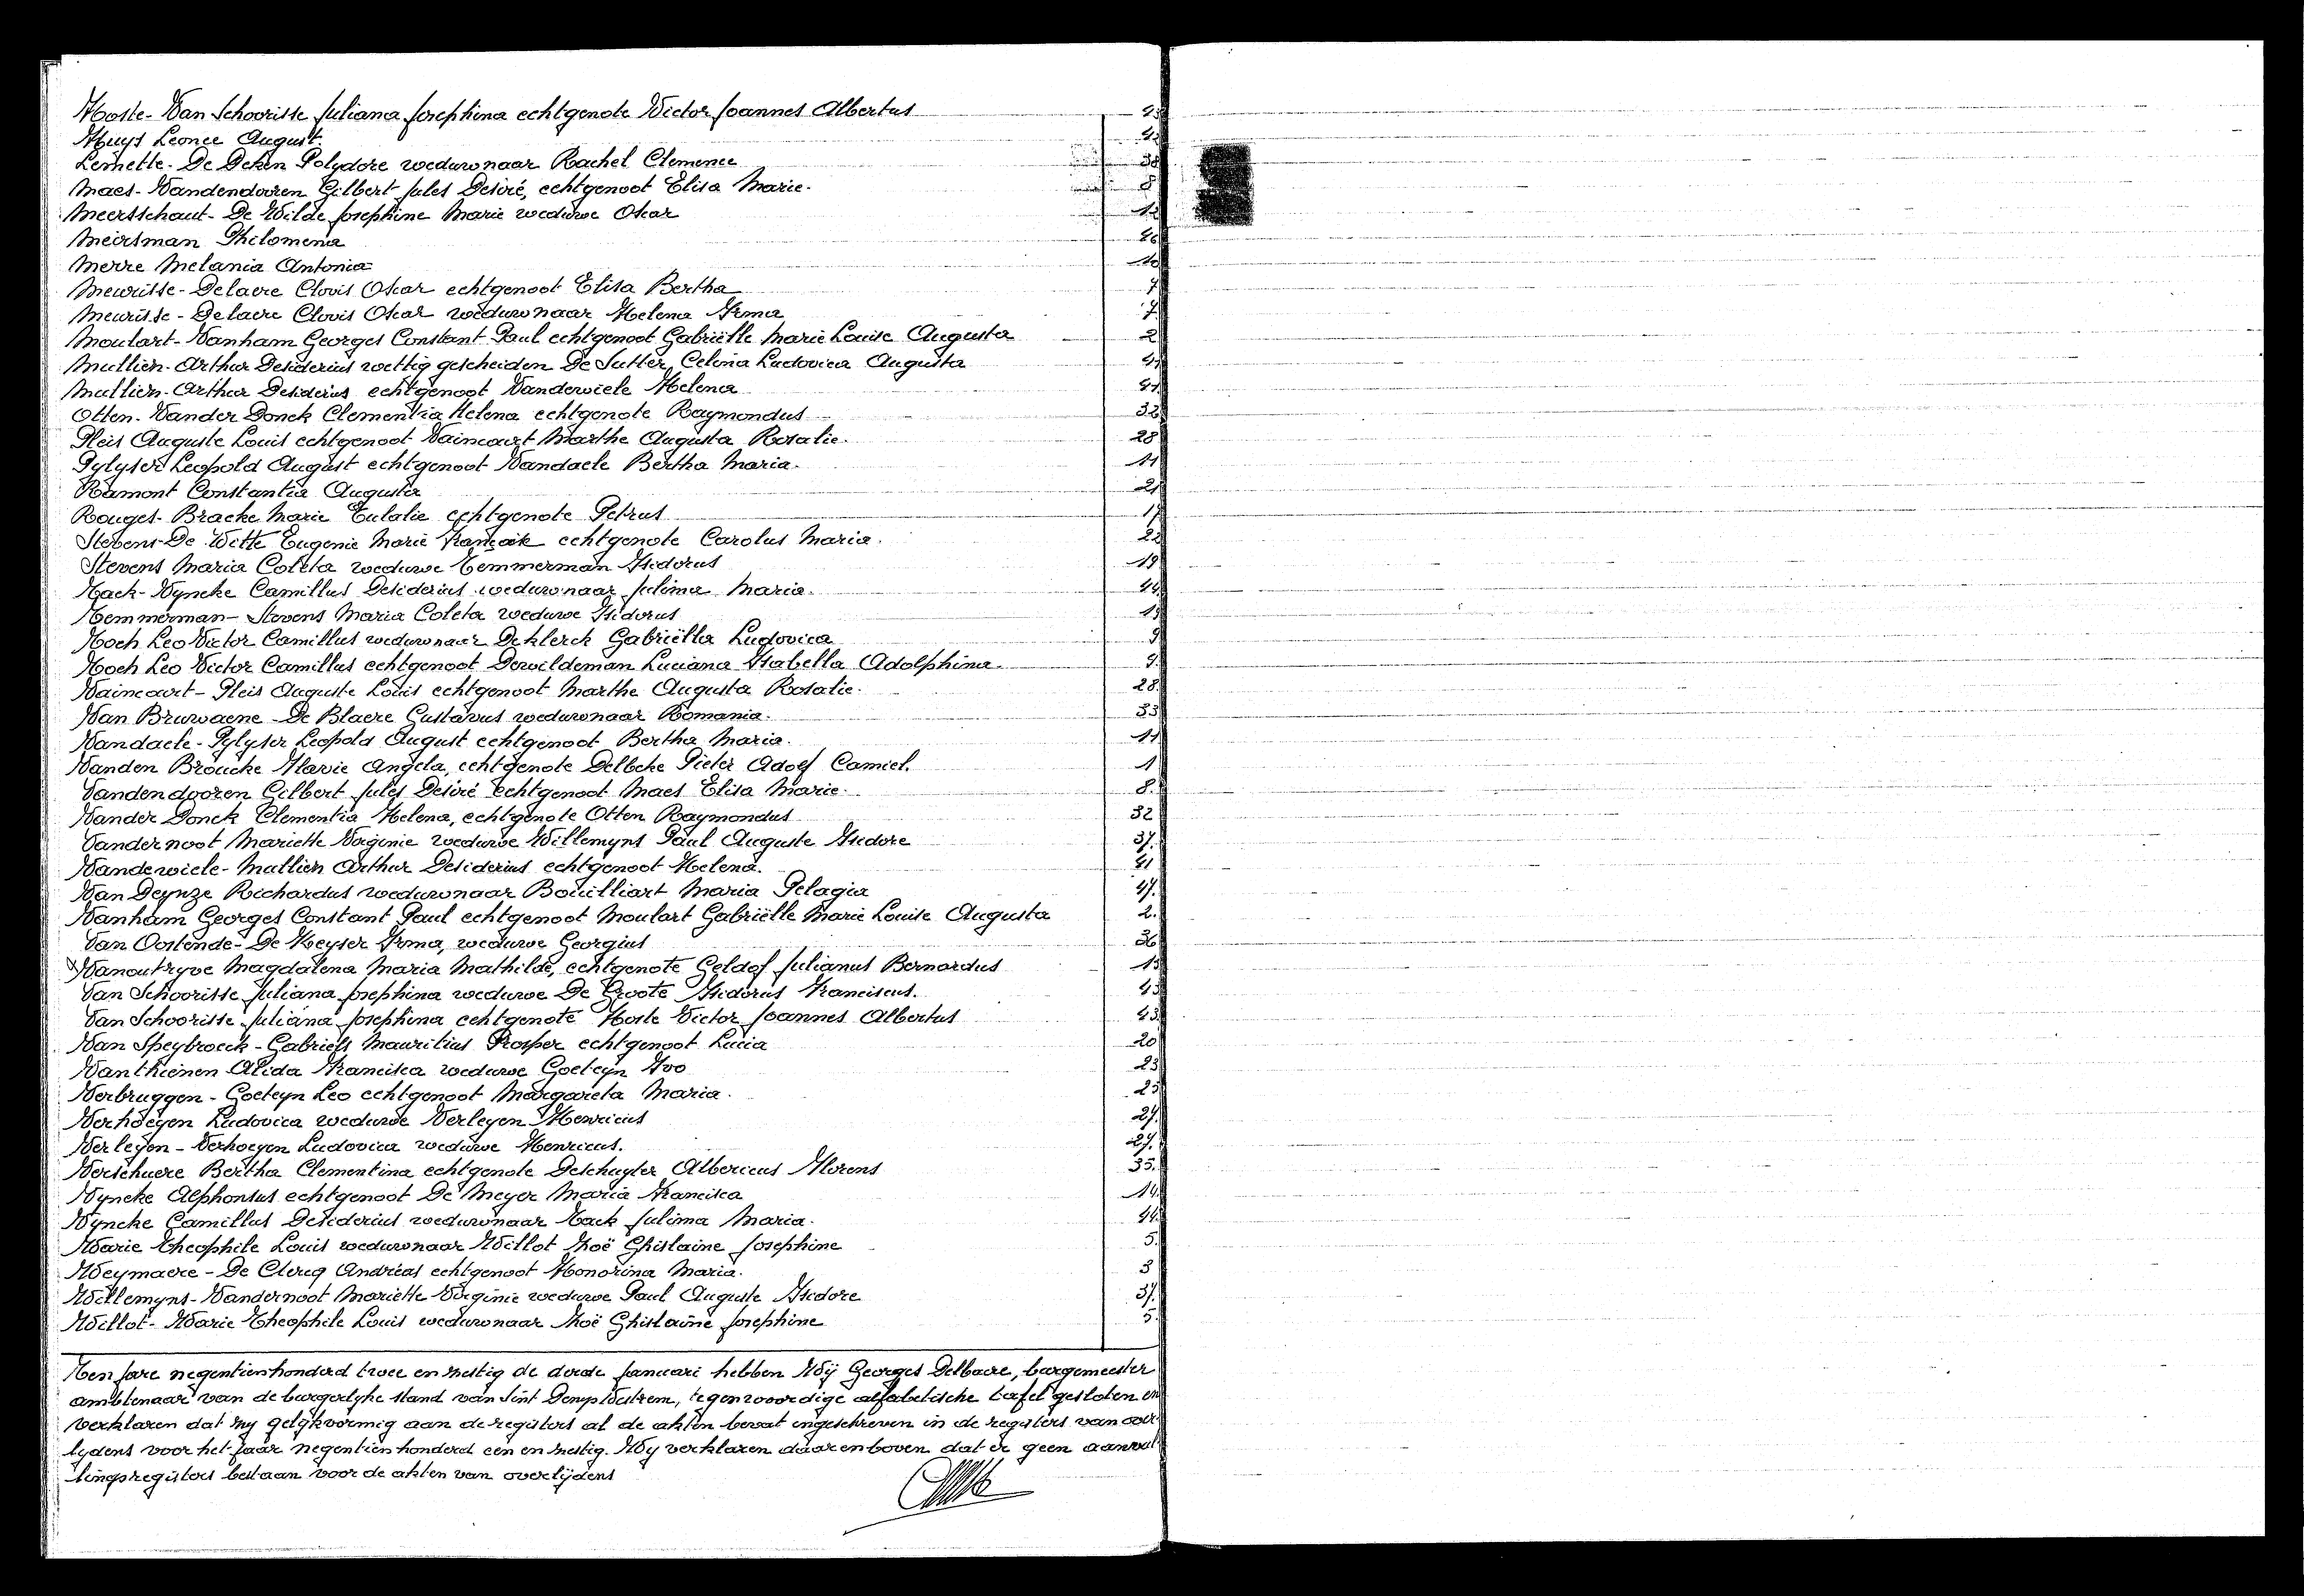 Hoste-Van Schoorisse Juliana Josephina echtgenote Victor Joannes Albertus 43
Huys Leonce August. 42
Lemette-De Deken Polydore weduwnaar Rachel Clemence 38
Maes-Vandendooren Gilbert Jules Desiré, echtgenoot Elisa Marie. 8
Meersschaut-De Wilde Josephine Marie weduwe Oscar 12
Meirsman Philomena 46
Merre Melania Antonia 10
Meurisse-Delaere Clovis Oscar echtgenoot Elisa Bertha 7
Meurisse-Delaere Clovis Oscar weduwnaar Helena Irma 7.
Moulart-Vanham Georges Constant Paul echtgenoot Gabriëlle Marie Louise Augusta 2
Mullien-Arthur Desiderius wettig gescheiden De Sutter Celina Ludovica Augusta 41
Mullien-Arthur Desiderius echtgenoot Vandewiele Helena 41
Otten-Vander Donck Clementia Helena echtgenote Raymondus 32
Pleis Auguste Louis echtgenoot Vaincourt Marthe Augusta Rosalie. 28
Pylyser Leopold August echtgenoot Vandaele Bertha Maria. 11
Ramont Constantia Augusta 21
Rouges-Bracke Marie Eulalie echtgenote Petrus 17
Stevens-De Witte Eugenie Marie echtgenote Carolus Maria. 22
Stevens Maria Coleta weduwe Temmerman Isidorus 19
Tack-Vyncke Camillus Desiderius weduwnaar Julima Maria. 44
Temmerman-Stevens Maria Coleta weduwe Isidorus 19
Toch Leo Victor Camillus weduwnaar Deklerck Gabriëlla Ludovica 9
Toch Leo Victor Camillus echtgenoot Dewildeman Luciana Isabella Adolphina. 9.
Vaincourt-Pleis Auguste Louis echtgenoot Marthe Augusta Rosalie. 28.
Van Bruwaene-De Blaere Gustavus weduwnaar Romania. 33
Vandaele-Pylyser Leopold August echtgenoot Bertha Maria. 11
Vanden Broucke Flavie Angela, echtgenote Delbeke Pieter Adolf Camiel. 1
Vandendooren Gilbert Jules Desiré echtgenoot Maes Elisa Marie. 8.
Vander Donck Clementia Helena, echtgenote Otten Raymondus 32
Vandernoot Mariette Virginie weduwe Willemyns Paul Auguste Isidore 37.
Vandewiele-Mullien Arthur Desiderius echtgenoot Helena. 41
Van Deynze Richardus weduwnaar Bouilliart Maria Pelagia 47.
Vanham Georges Constant Paul echtgenoot Moulart Gabriëlle Marie Louise Augusta 2.
Van Oostende-De Keyser Irma, weduwe Georgius 36
Vanoutryve Magdalena Maria Mathilde, echtgenote Geldof Julianus Bernardus 15
Van Schoorisse Juliana Josephina weduwe De Groote Isidorus Franciscus. 43
Van Schoorisse Juliana Josephina echtgenote Hoste Victor Joannes Albertus 43.
Van Speybroeck-Gabriels Mauritius Prosper echtgenoot Lucia 20
Vanthienen Alida Francisca weduwe Goeteyn Ivo 23
Verbruggen-Goeteyn Leo echtgenoot Margareta Maria. 25
Verhoeyen Ludovica weduwe Verleyen Henricus 27.
Verleyen-Verhoeyen Ludovica weduwe Henricus. 27.
Verschuere Bertha Clementina echtgenote Deschuyter Albericus Florens 35.
Vyncke Alphonsus echtgenoot De Meyer Maria Francisca 14.
Vyncke Camillus Desiderius weduwnaar Tack Julima Maria. 44.
Warie Theophile Louis weduwnaar Willot Zoë Ghislaine Josephine 5.
Weymaere-De Clercq Andréas echtgenoot Honorina Maria. 3
Willemyns-Vandernoot Mariette Virginie weduwe Paul Auguste Isidore 37.
Willot-Warie Theophile Louis weduwnaar Zoë Ghislaine Josephine 5.
Ten jare negentienhonderd twee en zestig de derde januari hebben Wij Georges Delbaere, burgemeester
ambtenaar van de burgerlyke stand van Sint Denys Westrem, tegenwoordige alfabetische tafel gesloten en
verklaren dat zy gelijkvormig aan de registers al de akten bevat ingeschreven in de registers van over-
lydens voor het jaar negentienhonderd een en zestig. Wy verklaren daarenboven dat er geen aanvul-
lingsregisters bestaan voor de akten van overlijdens